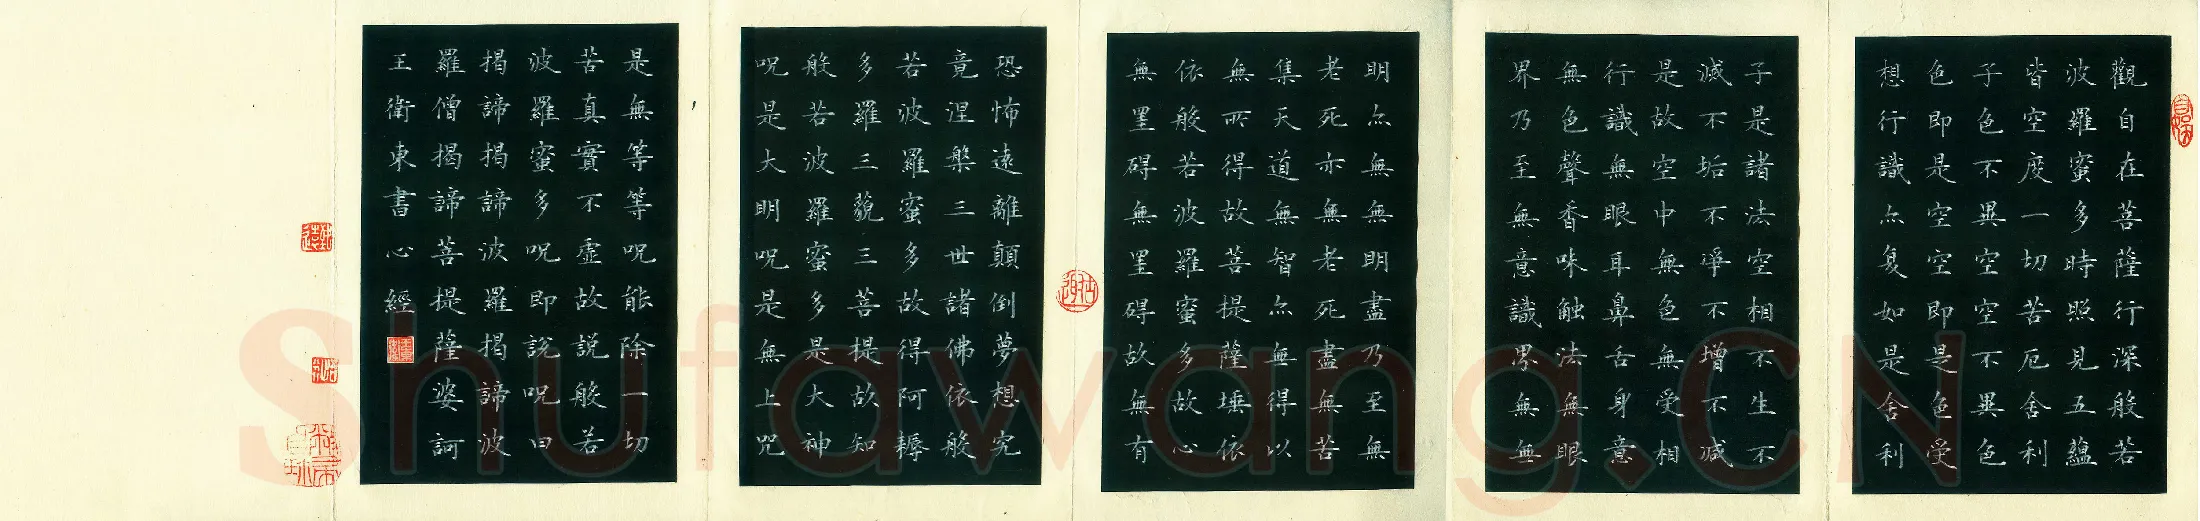 觀自在菩薩行深般若
波羅蜜多時照見五蘊
皆空度一切苦厄舍利
子色不異空空不異色
色即是空空即是色受
想行識亦复如是舍利
子是諸法空相不生不
滅不垢不淨不增不減
是故空中無色無受相
行識無眼耳鼻舌身意
無色聲香味触法無眼
界乃至無意識界無無
明亦無無明盡乃至無
老死亦無老死盡無苦
集天道無智亦無得以
無所得故菩提薩埵依
依般若波羅蜜多故心
無罣碍無罣碍故無有
恐怖遠離顛倒夢想究
竟涅槃三世諸佛依般
若波羅蜜多故得阿耨
多羅三藐三菩提故知
般若波羅蜜多是大神
呪是大明呪是無上呪
是無等等呪能除一切
苦真實不虛故説般若
波羅蜜多呪即説呪曰
揭諦揭諦波羅揭諦波
羅僧揭諦菩提薩婆訶
王衛東書心經
Shufawang.CN